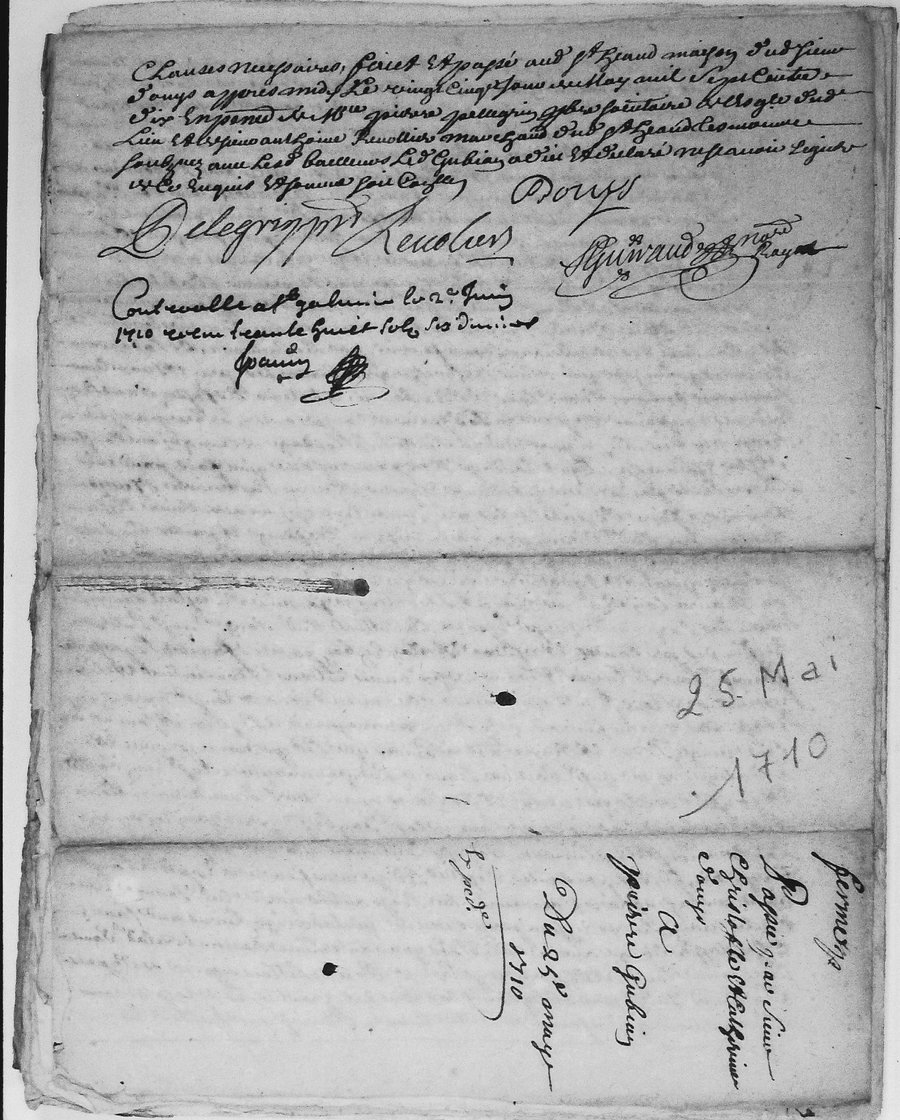 Clauses necessaires, faict et passé aud st heand maison dud sieur
Douys appres midy Le vingt cinq jour de May mil sept cent
dix En presence de Mre pierre pellegrin pbre societaire de leglise dud
Lieu et de sieur anthoine Renollier marchand dud st heand tesmoins
soubznez avec lesd bailleurs Led Gubian a dit et declaré ne scavoir signer
de ce enquis et somme
Douys
Pelegrin pbre
Renolier
Guiraud nore Royal
Controlle a st galmier le 2e Juin
1710 receu huict solz six deniers
25 Mai
1710
fermeys
par sieur
Christofle et Catherine
Douys
A
pierre Gubian
Du 25e may
1710
Expedé